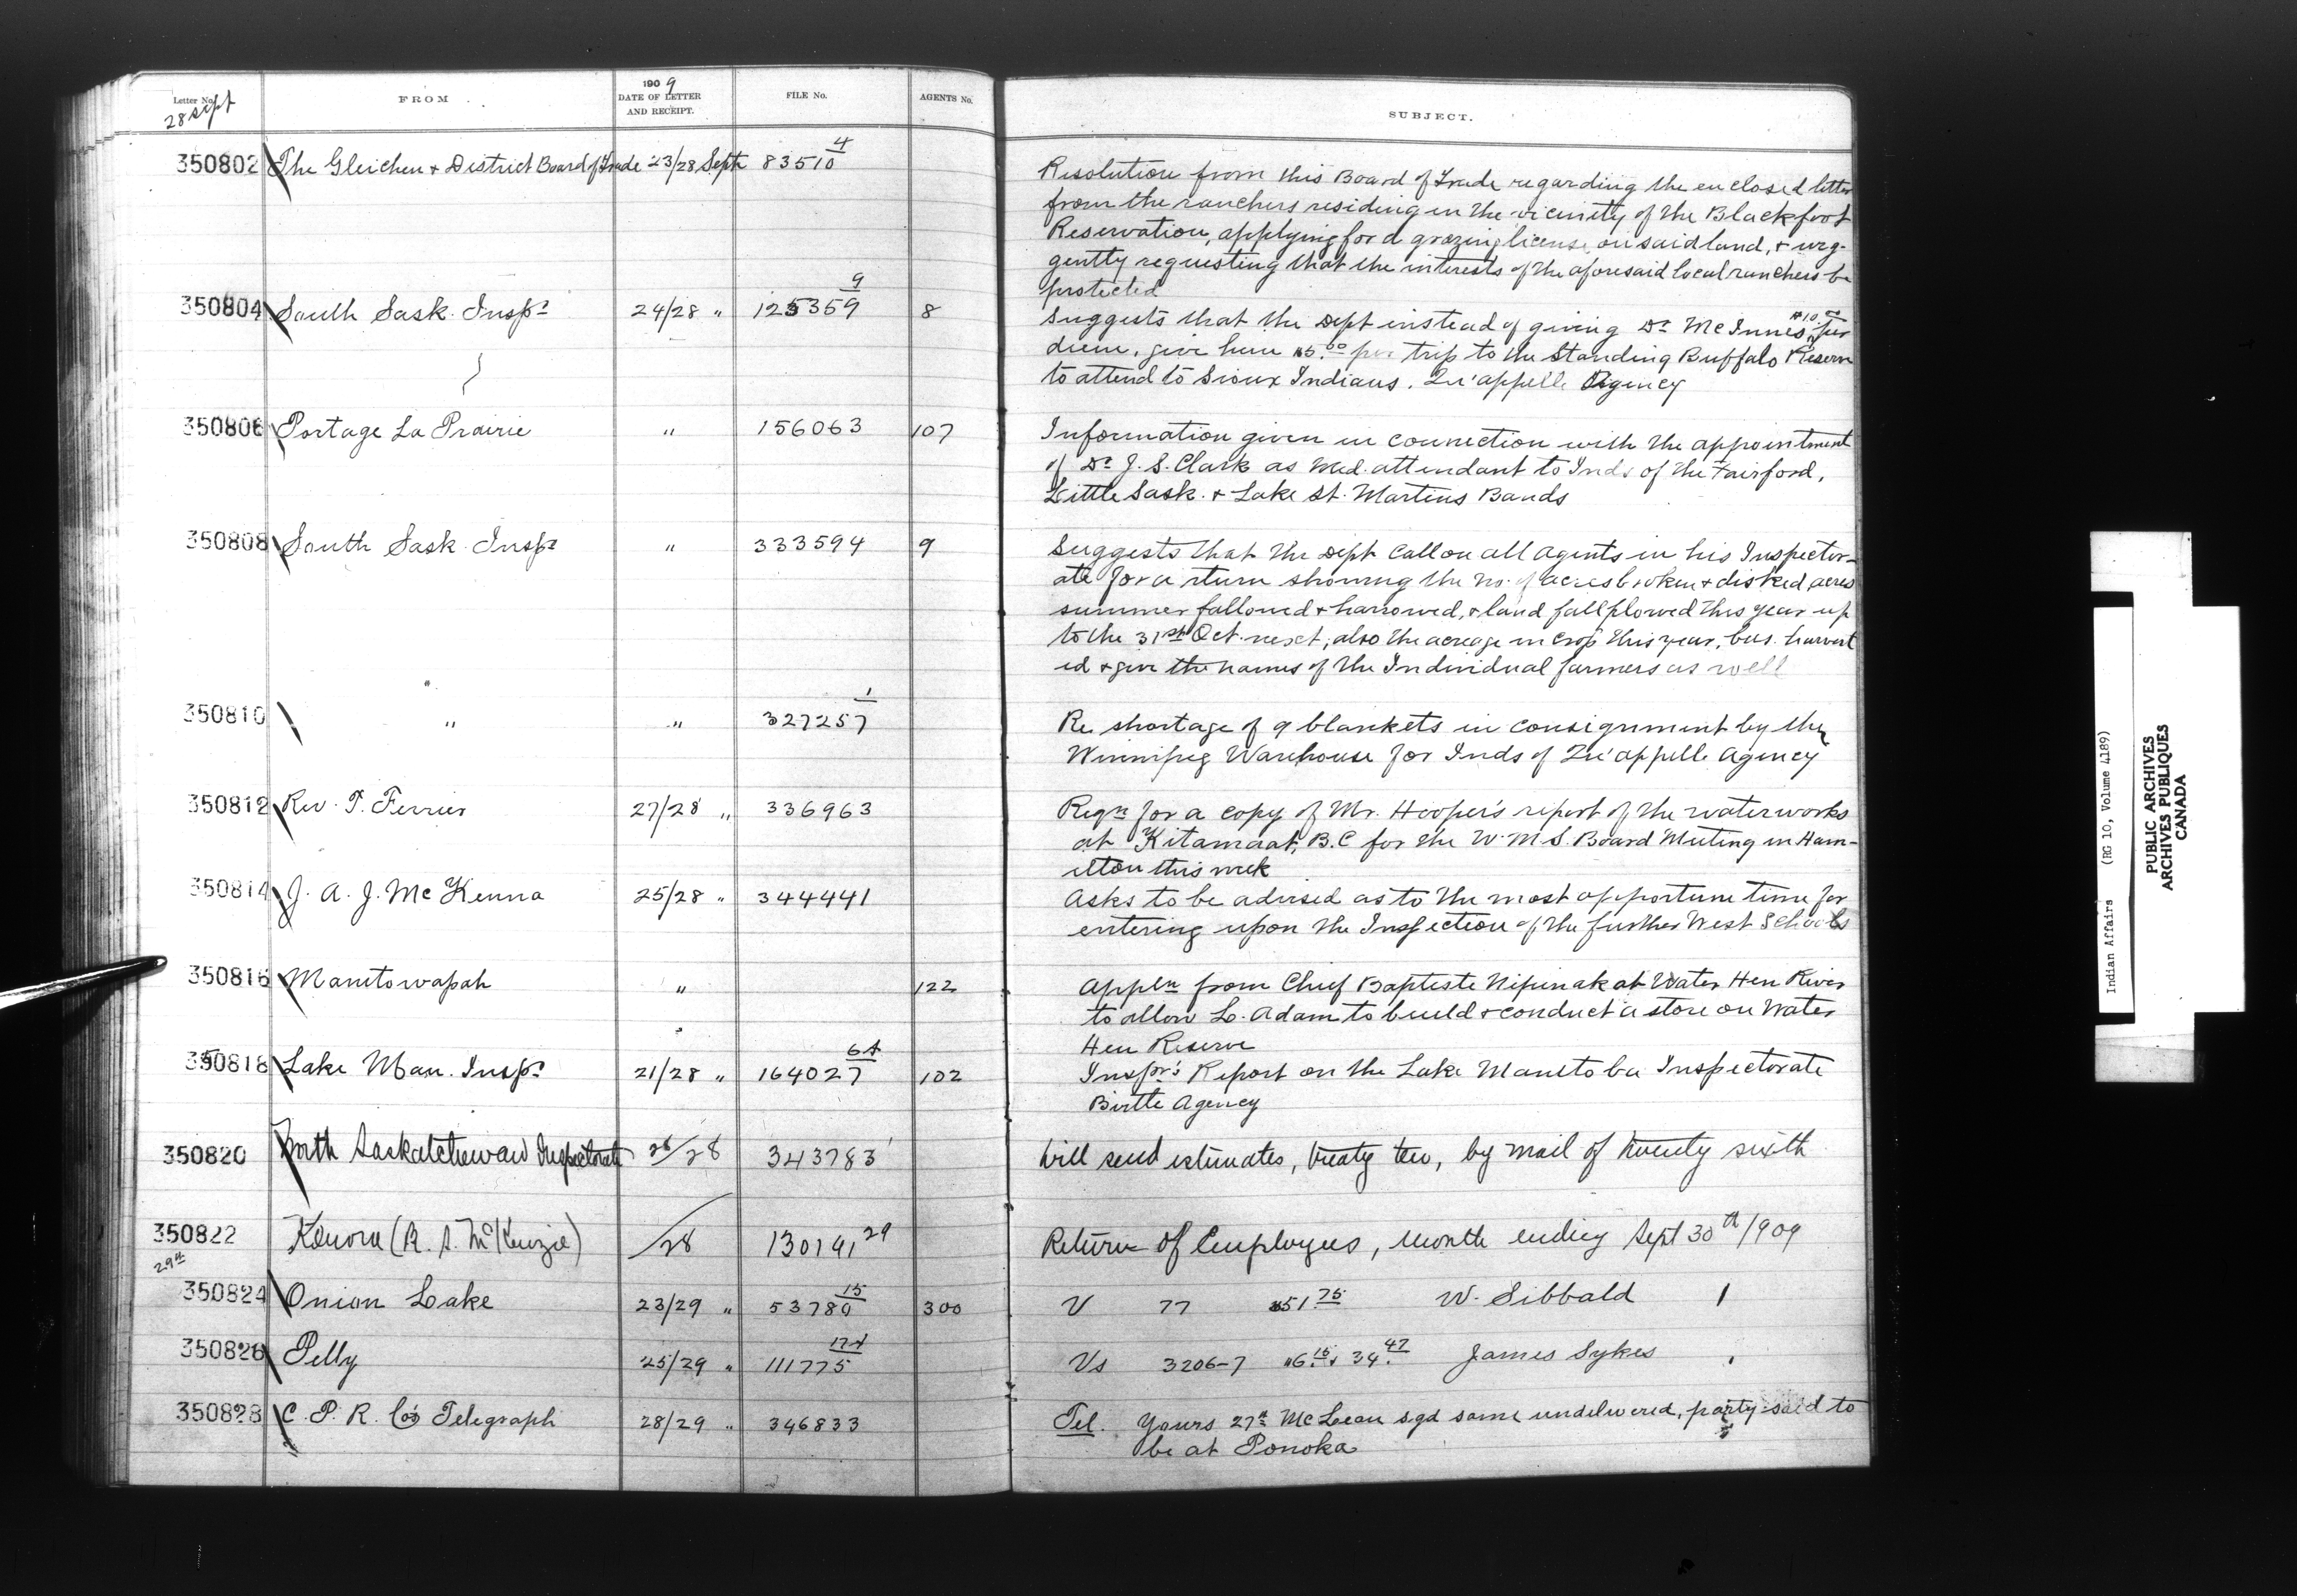 Letter No. FROM 1909 DATE OF LETTER AND RECEIPT. FILE No. AGENTS No. SUBJECT.
28 Sept
350802 The Gleichen + District Board of Trade 23/28 Sept 83510 4 Resolution from this Board of Trade regarding the enclosed letter
from the ranchers residing in the vicinity of the Blackfoot
Reservation, applying for a grazing license on said land, + urg-
gently requesting that the interests of the aforesaid local ranchers be
protected
350804 South Sask. Inspr 24/28 " 125359 9 8 Suggests that the Dept instead of giving Dr McInnes $10.00 per
diem, give him $5.00 per trip to the Standing Buffalo Reserve
to attend to Sioux Indians. Qu'appelle Agency
350806 Portage La Prairie " 156063 107 Information given in connection with the appointment
of Dr J. S. Clark as Med. attendant to Inds of the Fairford,
Little Sask. + Lake St. Martins Bands
350808 South Sask. Inspr " 333594 9 Suggests that the Dept call on all Agents in his Inspector-
ate for a return showing the no. of acres broken + disked, acres
summer fallowed + harrowed, + land fall plowed this year up
to the 31st Oct. next, also the acreage in crop this year, bus. harvest
ed + give the names of the Individual farmers as well
350810 " " 327257 1 Re shortage of 9 blankets in consignment by the
Winnipeg Warehouse for Inds of Qu'appelle Agency
350812 Rev. T. Ferrier 27/28 " 336963 Reqn for a copy of Mr. Hooper's report of the waterworks
at Kitamaat, B.C for the W.M.S. Board Meeting in Ham-
ilton this week
350814 J. A. J. McKenna 25/28 " 344441 Asks to be advised as to the most opportune time for
entering upon the Inspection of the further West Schools
350816 Manitowapah " 122 Appln from Chief Baptiste Nipinak at Water Hen River
to allow L. Adam to build + conduct a store on Water
Hen Reserve
350818 Lake Man. Inspr 21/28 " 164027 102 Inspr's Report on the Lake Manitoba Inspectorate
Birtle Agency
350820 North Saskatchewan Inspectorate 28/28 343783 Will send estimates, treaty ten, by mail of twenty sixth
350822 Kenora (R. S. McKenzie) /28 130191 29 Return of Employees, month ending Sept 30th/909
29th
350824 Onion Lake 23/29 " 53780 15 300 V 77 $51.75 W. Sibbald 1
350826 Pelly 25/29 " 111775 Vs 3206-7 $6.15 + 34.47 James Sykes
350828 C. P. R. Co's Telegraph 28/29 " 346833 Tel. Yours 27th McLean sgd same undelivered, party said to
be at Ponoka
Indian Affairs (RG 10, Volume 4189)
PUBLIC ARCHIVES
ARCHIVES PUBLIQUES
CANADA